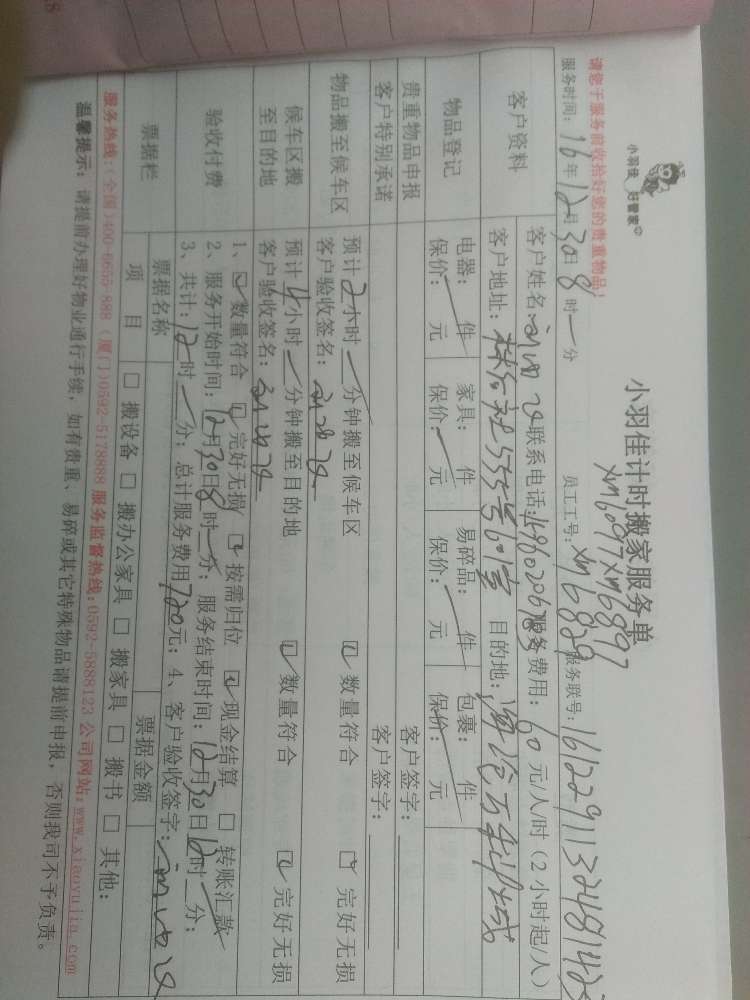 小羽佳 好管家
小羽佳计时搬家服务单
XM6097 XM6897
请您于服务前收拾好您的贵重物品!
服务时间: 16年12月30日8时一分 员工工号: XM6829 服务联号:
客户资料
客户姓名: 联系电话: 服务费用: 60元/人/时(2小时起/人)
客户地址: 目的地:
物品登记
电器: 件 家具: 件 易碎品: 件 包裹: 件
保价: 元 保价: 元 保价: 元 保价: 元
贵重物品申报 客户签字:
客户特别承诺 客户签字:
物品搬至候车区
预计2小时一分钟搬至候车区 数量符合 完好无损
客户验收签名:
候车区搬至目的地
预计4小时一分钟搬至目的地 数量符合 完好无损
客户验收签名:
验收付费
1、数量符合 完好无损 按需归位 现金结算 转账汇款
2、服务开始时间: 12月30日8时一分; 服务结束时间: 12月30日12时一分;
3、共计: 12时一分; 总计服务费用720元; 4、客户验收签字:
票据栏
票据名称 票据金额
项目 搬设备 搬办公家具 搬家具 搬书 其他:
服务热线:(全国)400-6655-888 (厦门)0592-5178888 服务监督热线:0592-5888123 公司网站:www.xiaoyujia.com
温馨提示: 请提前办理好物业通行手续, 如有贵重、易碎或其它特殊物品请提前申报, 否则我司不予负责。